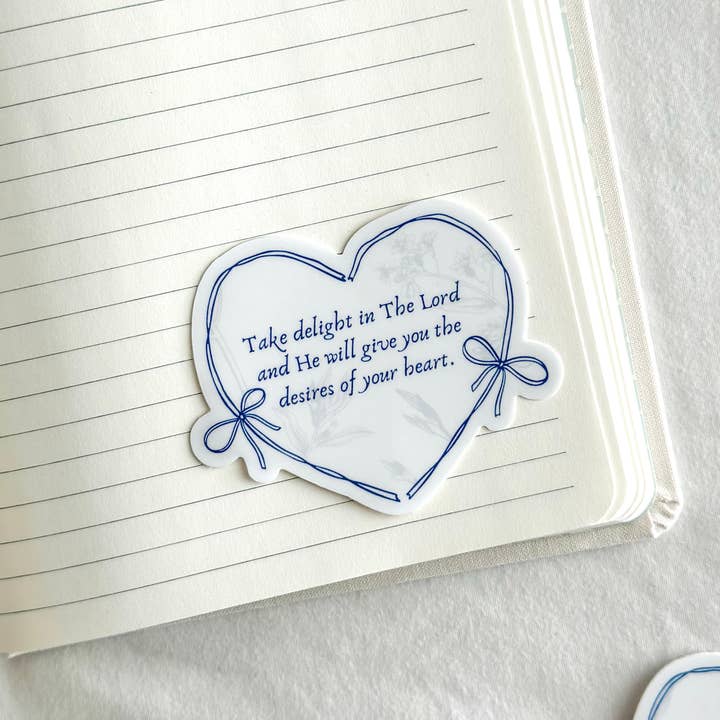 Take delight in The Lord
and He will give you the
desires of your heart.